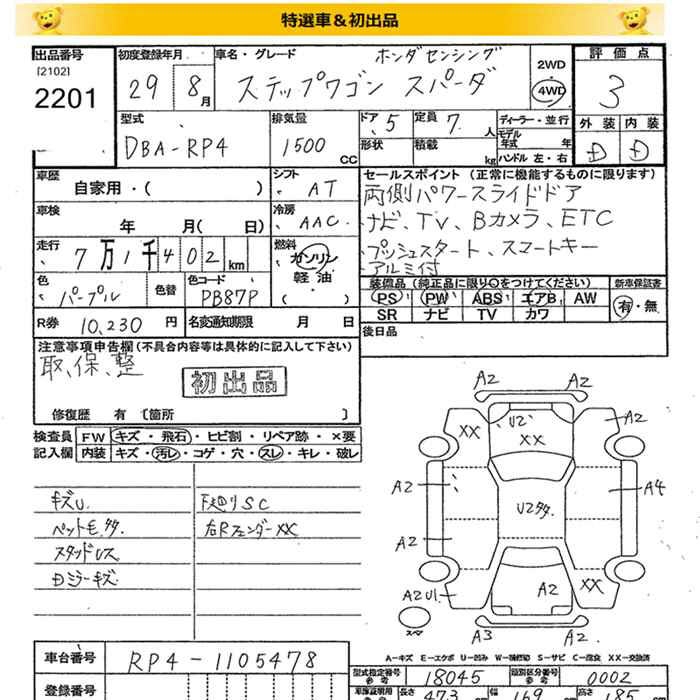 特選車＆初出品
出品番号 [2102] 2201
初度登録年月 29 8月
車名・グレード ホンダセンシング
ステップワゴン スパーダ
2WD・4WD
評価点 3
外装 内装
D D
型式 DBA-RP4
排気量 1500 CC
ドア 5
形状
定員 7 人
積載 kg
ディーラー・並行
モデル年式 年
ハンドル 左・右
車歴 自家用・( )
シフト AT
車検 年 月( 日)
冷房 AAC
走行 7万1千402 km
燃料 ガソリン 軽油
色 パープル
色替
色コード PB87P
R券 10,230 円
名変通知期限 月 日
セールスポイント (正常に機能するものに限ります)
両側パワースライドドア
ナビ、TV、Bカメラ、ETC
プッシュスタート、スマートキー
アルミ付
装備品 (純正品に限り○をつけてください)
PS PW ABS エアB AW
SR ナビ TV カワ
新車保証書
有・無
後日品
注意事項申告欄 (不具合内容等は具体的に記入して下さい)
取、保、整
初出品
修復歴 有 [箇所 ]
検査員記入欄
FW キズ・飛石・ヒビ割・リペア跡・×要
内装 キズ・汚レ・コゲ・穴・スレ・キレ・破レ
キズU.
ペット毛、多
スタッドレス
Dミラーキズ
下廻りSC
右Rフェンダー XX
A2 A2
XX U2 XX A2
A2 U2多 A4
A2
A2 XX
A2 U1
スペア A3 A2
A-キズ E-エクボ U-凹み W-補修跡 S-サビ C-腐食 XX-交換済
車台番号 RP4-1105478
登録番号
型式指定番号 参考 18045
類別区分番号 参考 0002
車庫証明用 参考 長さ 473 cm 幅 169 高さ 185 cm